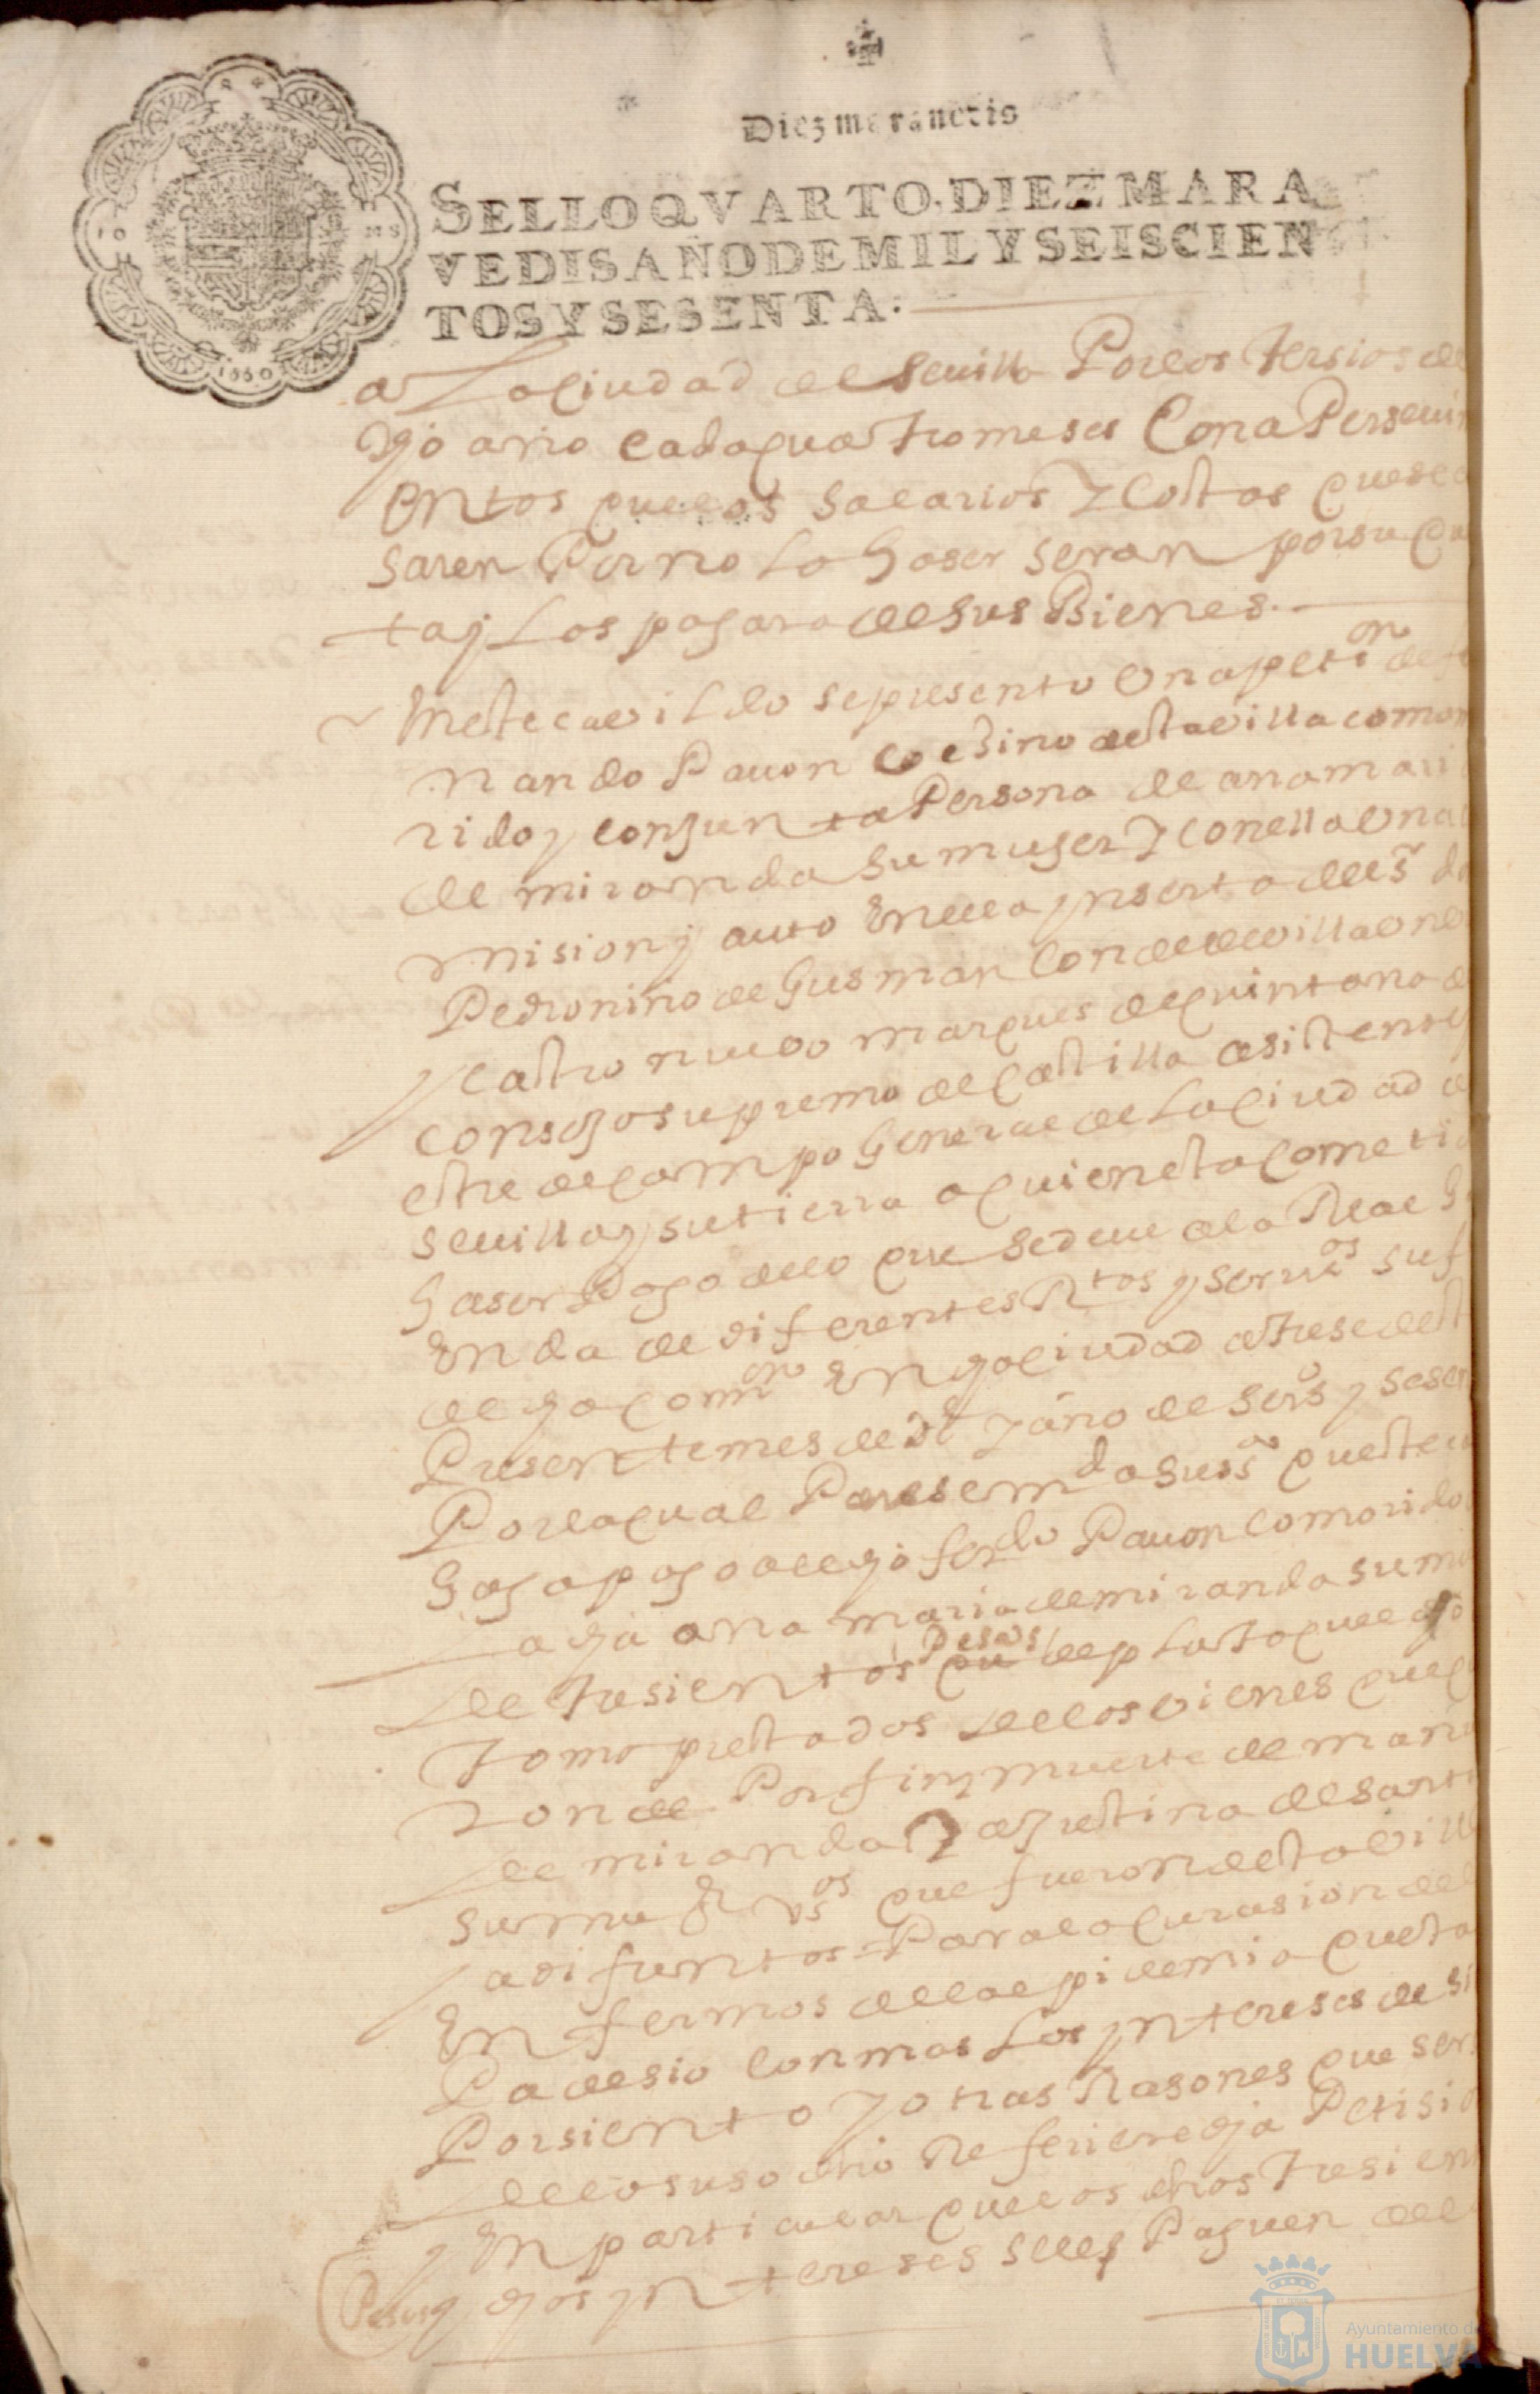 Diez maravedis
SELLO QVARTO, DIEZ MARA
VEDIS AÑO DE MIL Y SEISCIEN
TOS Y SESENTA.
1660
a La çiudad de sevilla Por los tersios de
dho año cada quatro meses Con aPersevim
entos que los salarios Y Costas que se ca
saren Por no lo haser seran por su qu
ta y Los pagara de sus Bienes.
En este cavildo se presento Una petiⁿ de fer
nando Pavon vesino desta villa como m
rido y conjunta Persona de ana maria
de miranda su muger Y con ella Una co
mision y auto En ella ynserto del sʳ do
Pedro niño de Gusman Conde de villaUnbr
y castro nuevo marques de quintana d
consejo supremo de Castilla asistente
estre de Campo General de La Çiudad de
sevilla y su tierra a quien esta Cometid
haser Pago de lo que se deve a la Real h
Enda de diferentes Rtos y servios su f
de dha Comon En dha çiudad a trese deste
Presente mes de y año de seis y sesen
Por la qual Parese mda su sa que este ca
haga pago al dho ferdo Pavon Como marido
La dha ana maria de miranda su mu
de tresientos Pesos de plata que el dho
tomo prestados de los vienes que q
ron de Por fin y muerte de maria
de miranda Y agustina de sant
su vos que fueron desta vill
ya difuntos Para la Curasion de l
Enfermos de la epidemia que esta
Padesio con mas Los yntereses de si
Por siento Y otras Rasones que ser
de lo suso dho Refiere dha Petisio
y En particular que los dhos tresient
Pesos y dhos yntereses se les Paguen de l
Ayuntamiento de
HUELVA